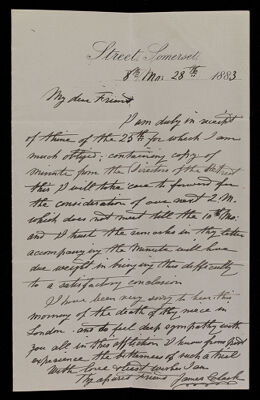 Street, Somerset,
8th Mo: 28th 1883
My dear Friend
I am duly in receipt
of thine of the 25th for which I am
much obliged; containing copy of
Minute from the Directors of the
this I will take care to forward for
the consideration of our next 2. M.
which does not meet till the 10th Mo:
and I trust the remarks in thy letter
accompanying the Minute will have
due weight in bringing this difficulty
to a satisfactory conclusion
I have been very sorry to hear this
morning of the death of thy niece in
London. and do feel deep sympathy with
you all in this affliction I know from past
experience the bitterness of such a trial
With love & best wishes I am
Thy assured Friend James Clark